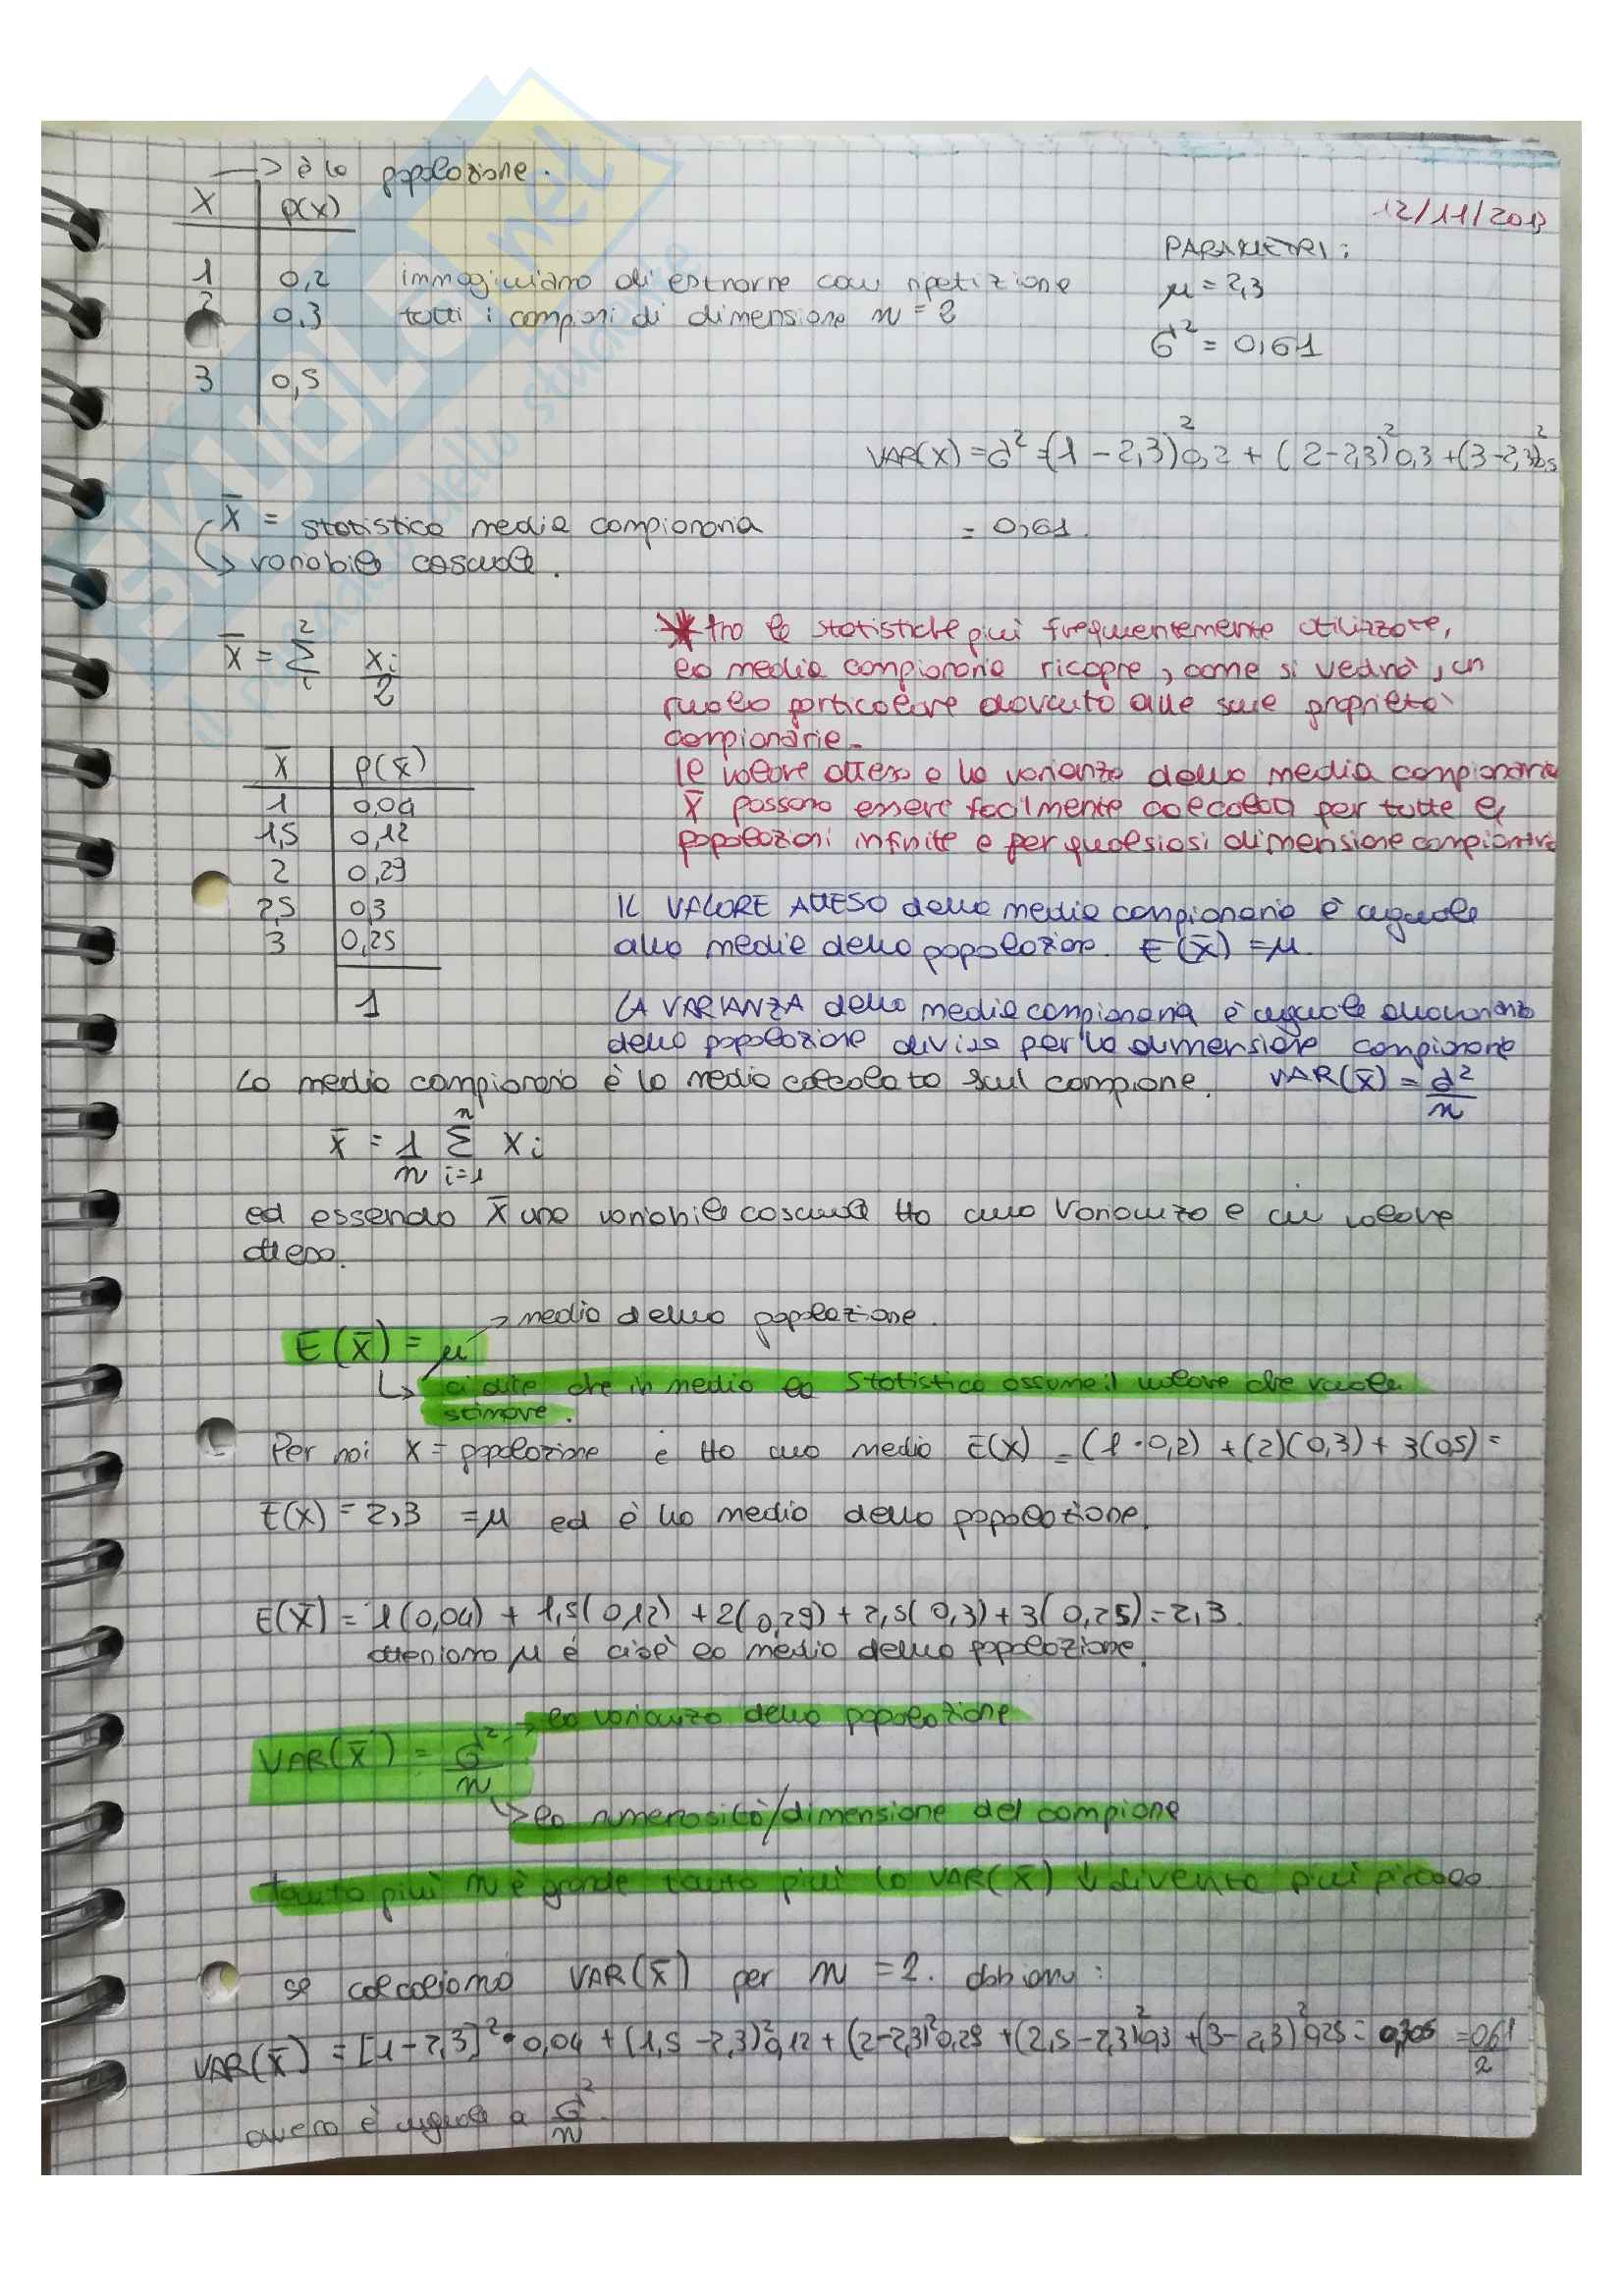 → è la popolazione.
X | p(x)
12/11/2018
PARAMETRI:
1 | 0,2 immaginiamo di estrarre con ripetizione
μ = 2,3
2 | 0,3 tutti i campioni di dimensione n = 2
σ² = 0,61
3 | 0,5
VAR(X) = σ² = (1 - 2,3)² 0,2 + (2-2,3)² 0,3 + (3-2,3)² 0,5
= 0,61.
X̄ = statistica media campionaria
↳ variabile casuale.
X̄ = Σ²ᵢ xi/2
* tra le statistiche più frequentemente utilizzate,
la media campionaria ricopre, come si vedrà, un
ruolo particolare dovuto alle sue proprietà
campionarie.
Il valore atteso e la varianza della media campionaria
X̄ possono essere facilmente calcolati per tutte le
popolazioni infinite e per qualsiasi dimensione campionaria
X̄ | p(x̄)
1 | 0,04
1,5 | 0,12
2 | 0,29
2,5 | 0,3
3 | 0,25
1
IL VALORE ATTESO della media campionaria è uguale
alla media della popolazione. E(X̄) = μ.
LA VARIANZA della media campionaria è uguale alla varianza
della popolazione divisa per la dimensione campionaria
VAR(X̄) = σ²/n
La media campionaria è la media calcolata sul campione.
x̄ = 1/n Σⁿᵢ₌₁ Xi
ed essendo X̄ una variabile casuale ha una varianza e un valore
atteso.
E(X̄) = μ → media della popolazione.
↳ ci dice che in media la statistica assume il valore che vuole
stimare.
Per noi X = popolazione e ha una media E(X) = (1·0,2) + (2)(0,3) + 3(0,5) =
E(X) = 2,3 = μ ed è la media della popolazione.
E(X̄) = 1(0,04) + 1,5(0,12) + 2(0,29) + 2,5(0,3) + 3(0,25) = 2,3.
otteniamo μ e cioè la media della popolazione.
VAR(X̄) = σ²/n → la varianza della popolazione
↳ la numerosità/dimensione del campione
tanto più n è grande tanto più la VAR(X̄) ↓ diventa più piccola
se calcoliamo VAR(X̄) per n = 2. abbiamo:
VAR(X̄) = [1-2,3]²·0,04 + (1,5-2,3)² 0,12 + (2-2,3)² 0,29 + (2,5-2,3)² 0,3 + (3-2,3)² 0,25 = 0,305 = 0,61/2
ovvero è uguale a σ²/n.